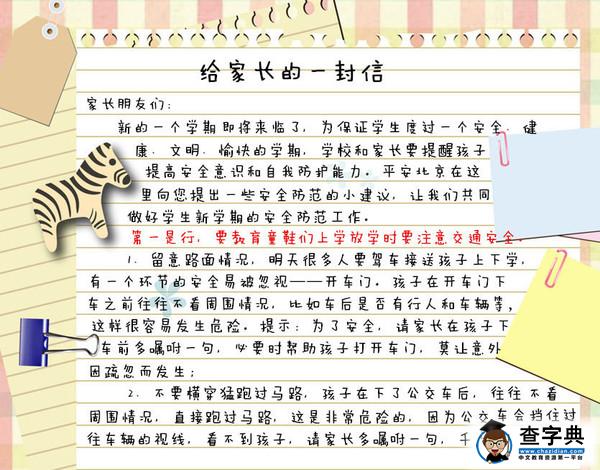 给家长的一封信
家长朋友们:
新的一个学期即将来临了，为保证学生度过一个安全、健
康、文明、愉快的学期，学校和家长要提醒孩子
提高安全意识和自我防护能力。平安北京在这
里向您提出一些安全防范的小建议，让我们共同
做好学生新学期的安全防范工作。
第一是行，要教育童鞋们上学放学时要注意交通安全。
1. 留意路面情况，明天很多人要驾车接送孩子上下学，
有一个环节的安全易被忽视——开车门。孩子在开车门下
车之前往往不看周围情况，比如车后是否有行人和车辆等，
这样很容易发生危险。提示：为了安全，请家长在孩子下
车前多嘱咐一句，必要时帮助孩子打开车门，莫让意外
因疏忽而发生；
2. 不要横穿猛跑过马路，孩子在下了公交车后，往往不看
周围情况，直接跑过马路，这是非常危险的，因为公交车会挡住过
往车辆的视线，看不到孩子，请家长多嘱咐一句，千
查字典
www.chazidian.com
中文教育资源第一平台